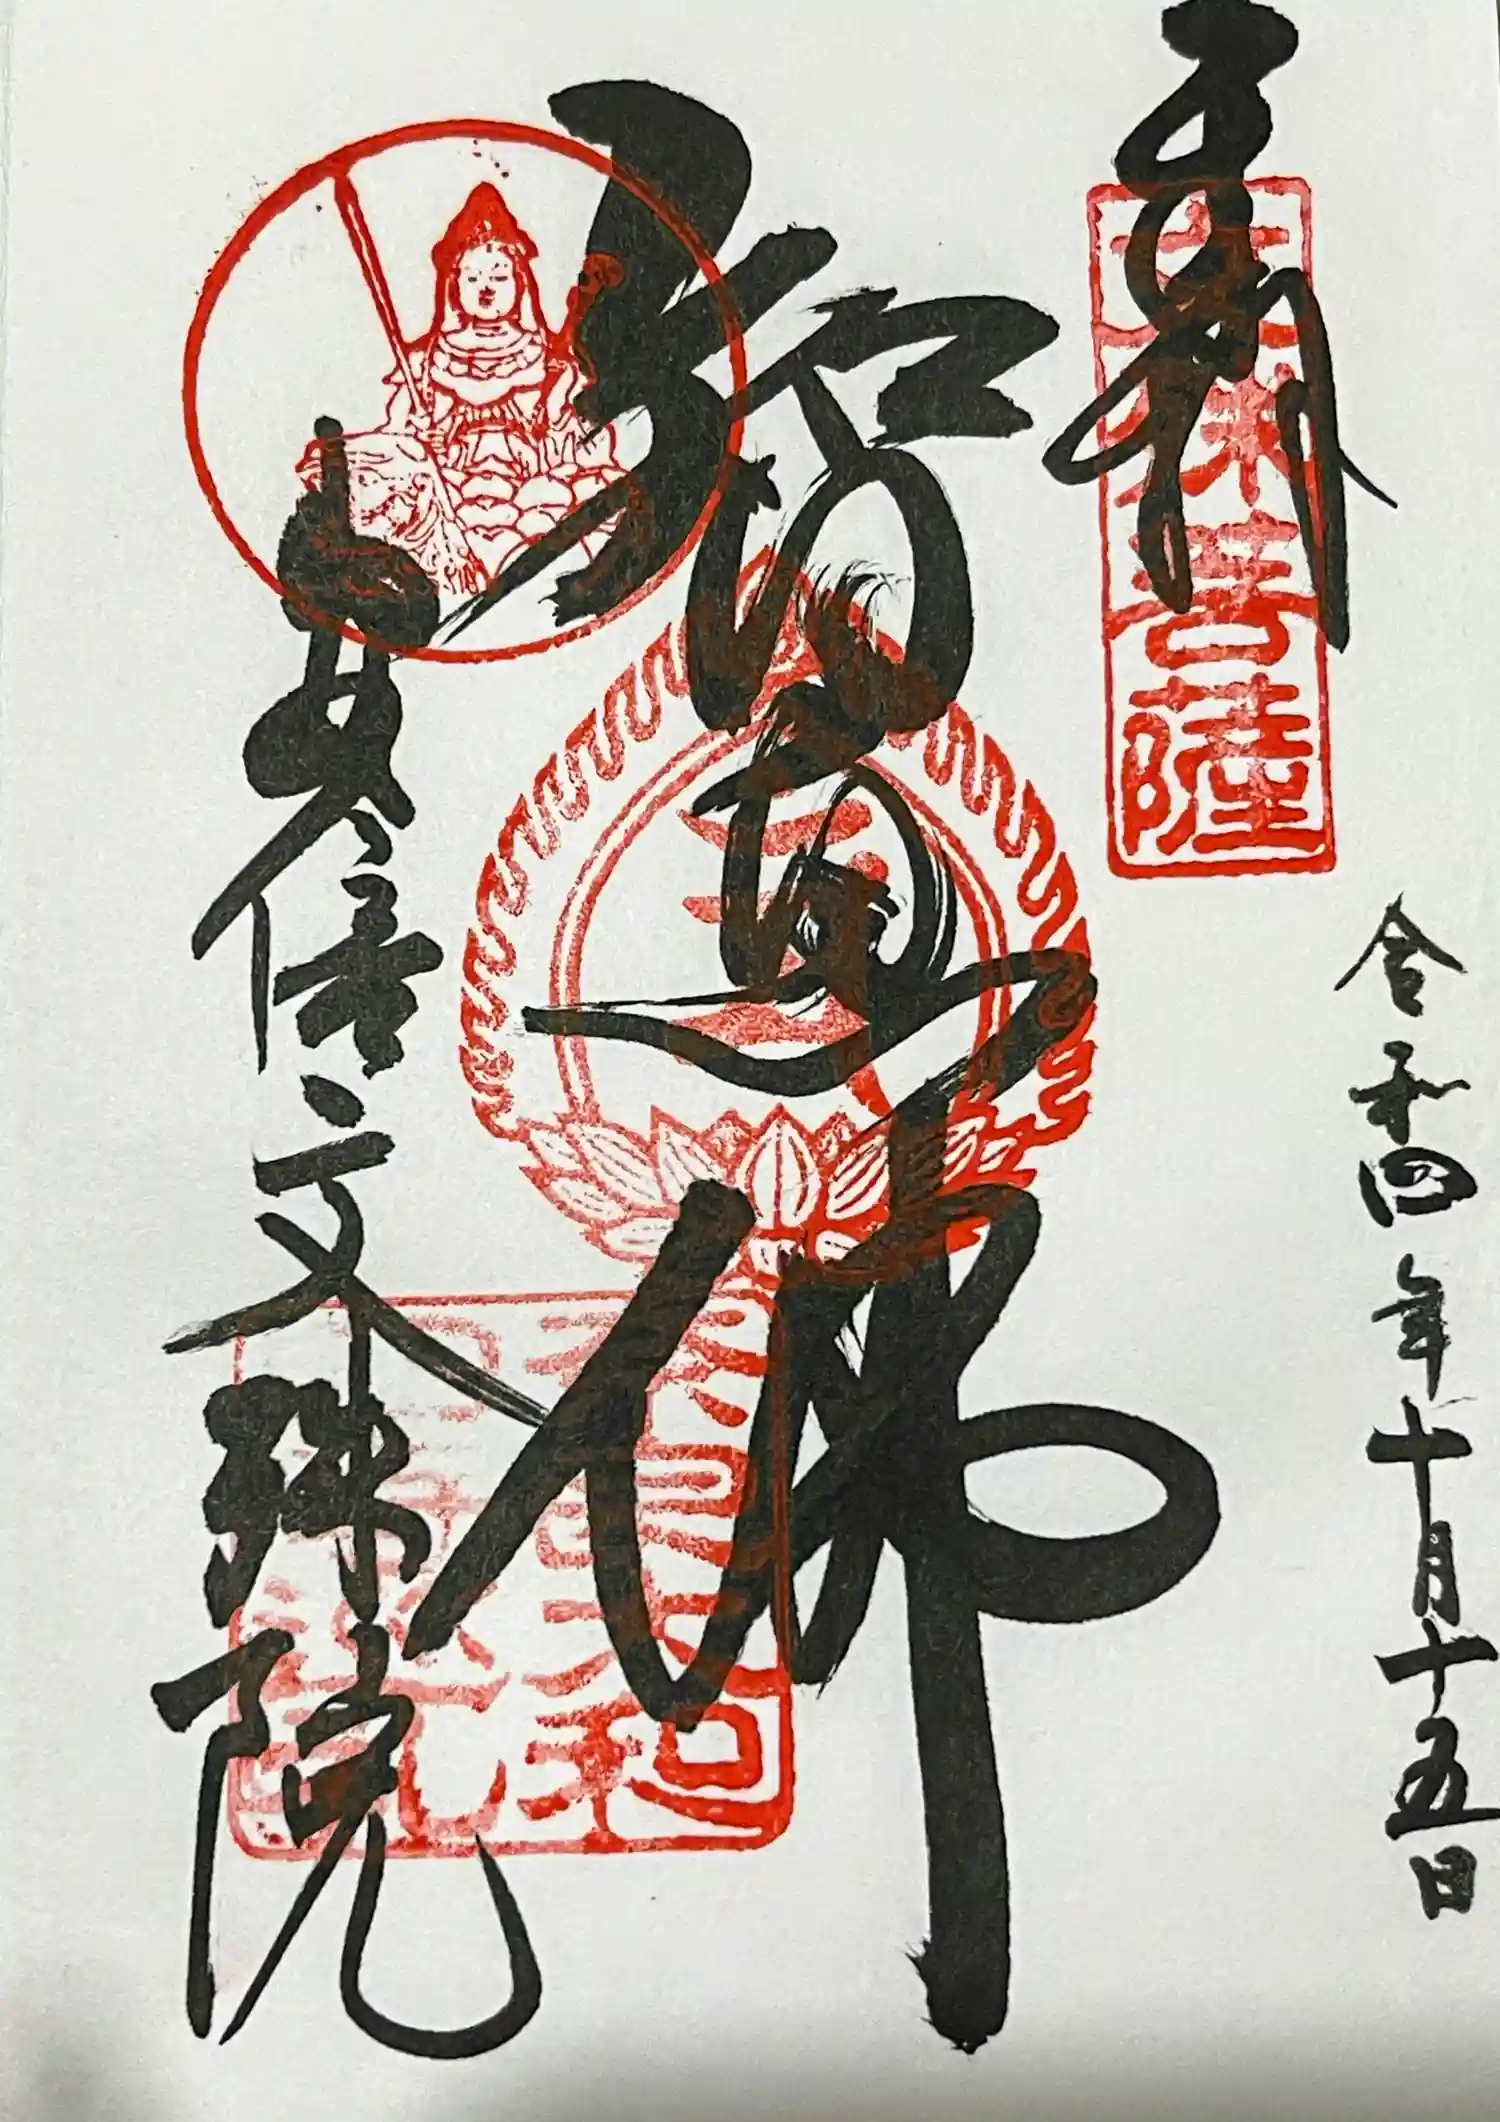 令和四年十月十五日
奉拝
文殊菩薩
智恵佛
安倍文殊院